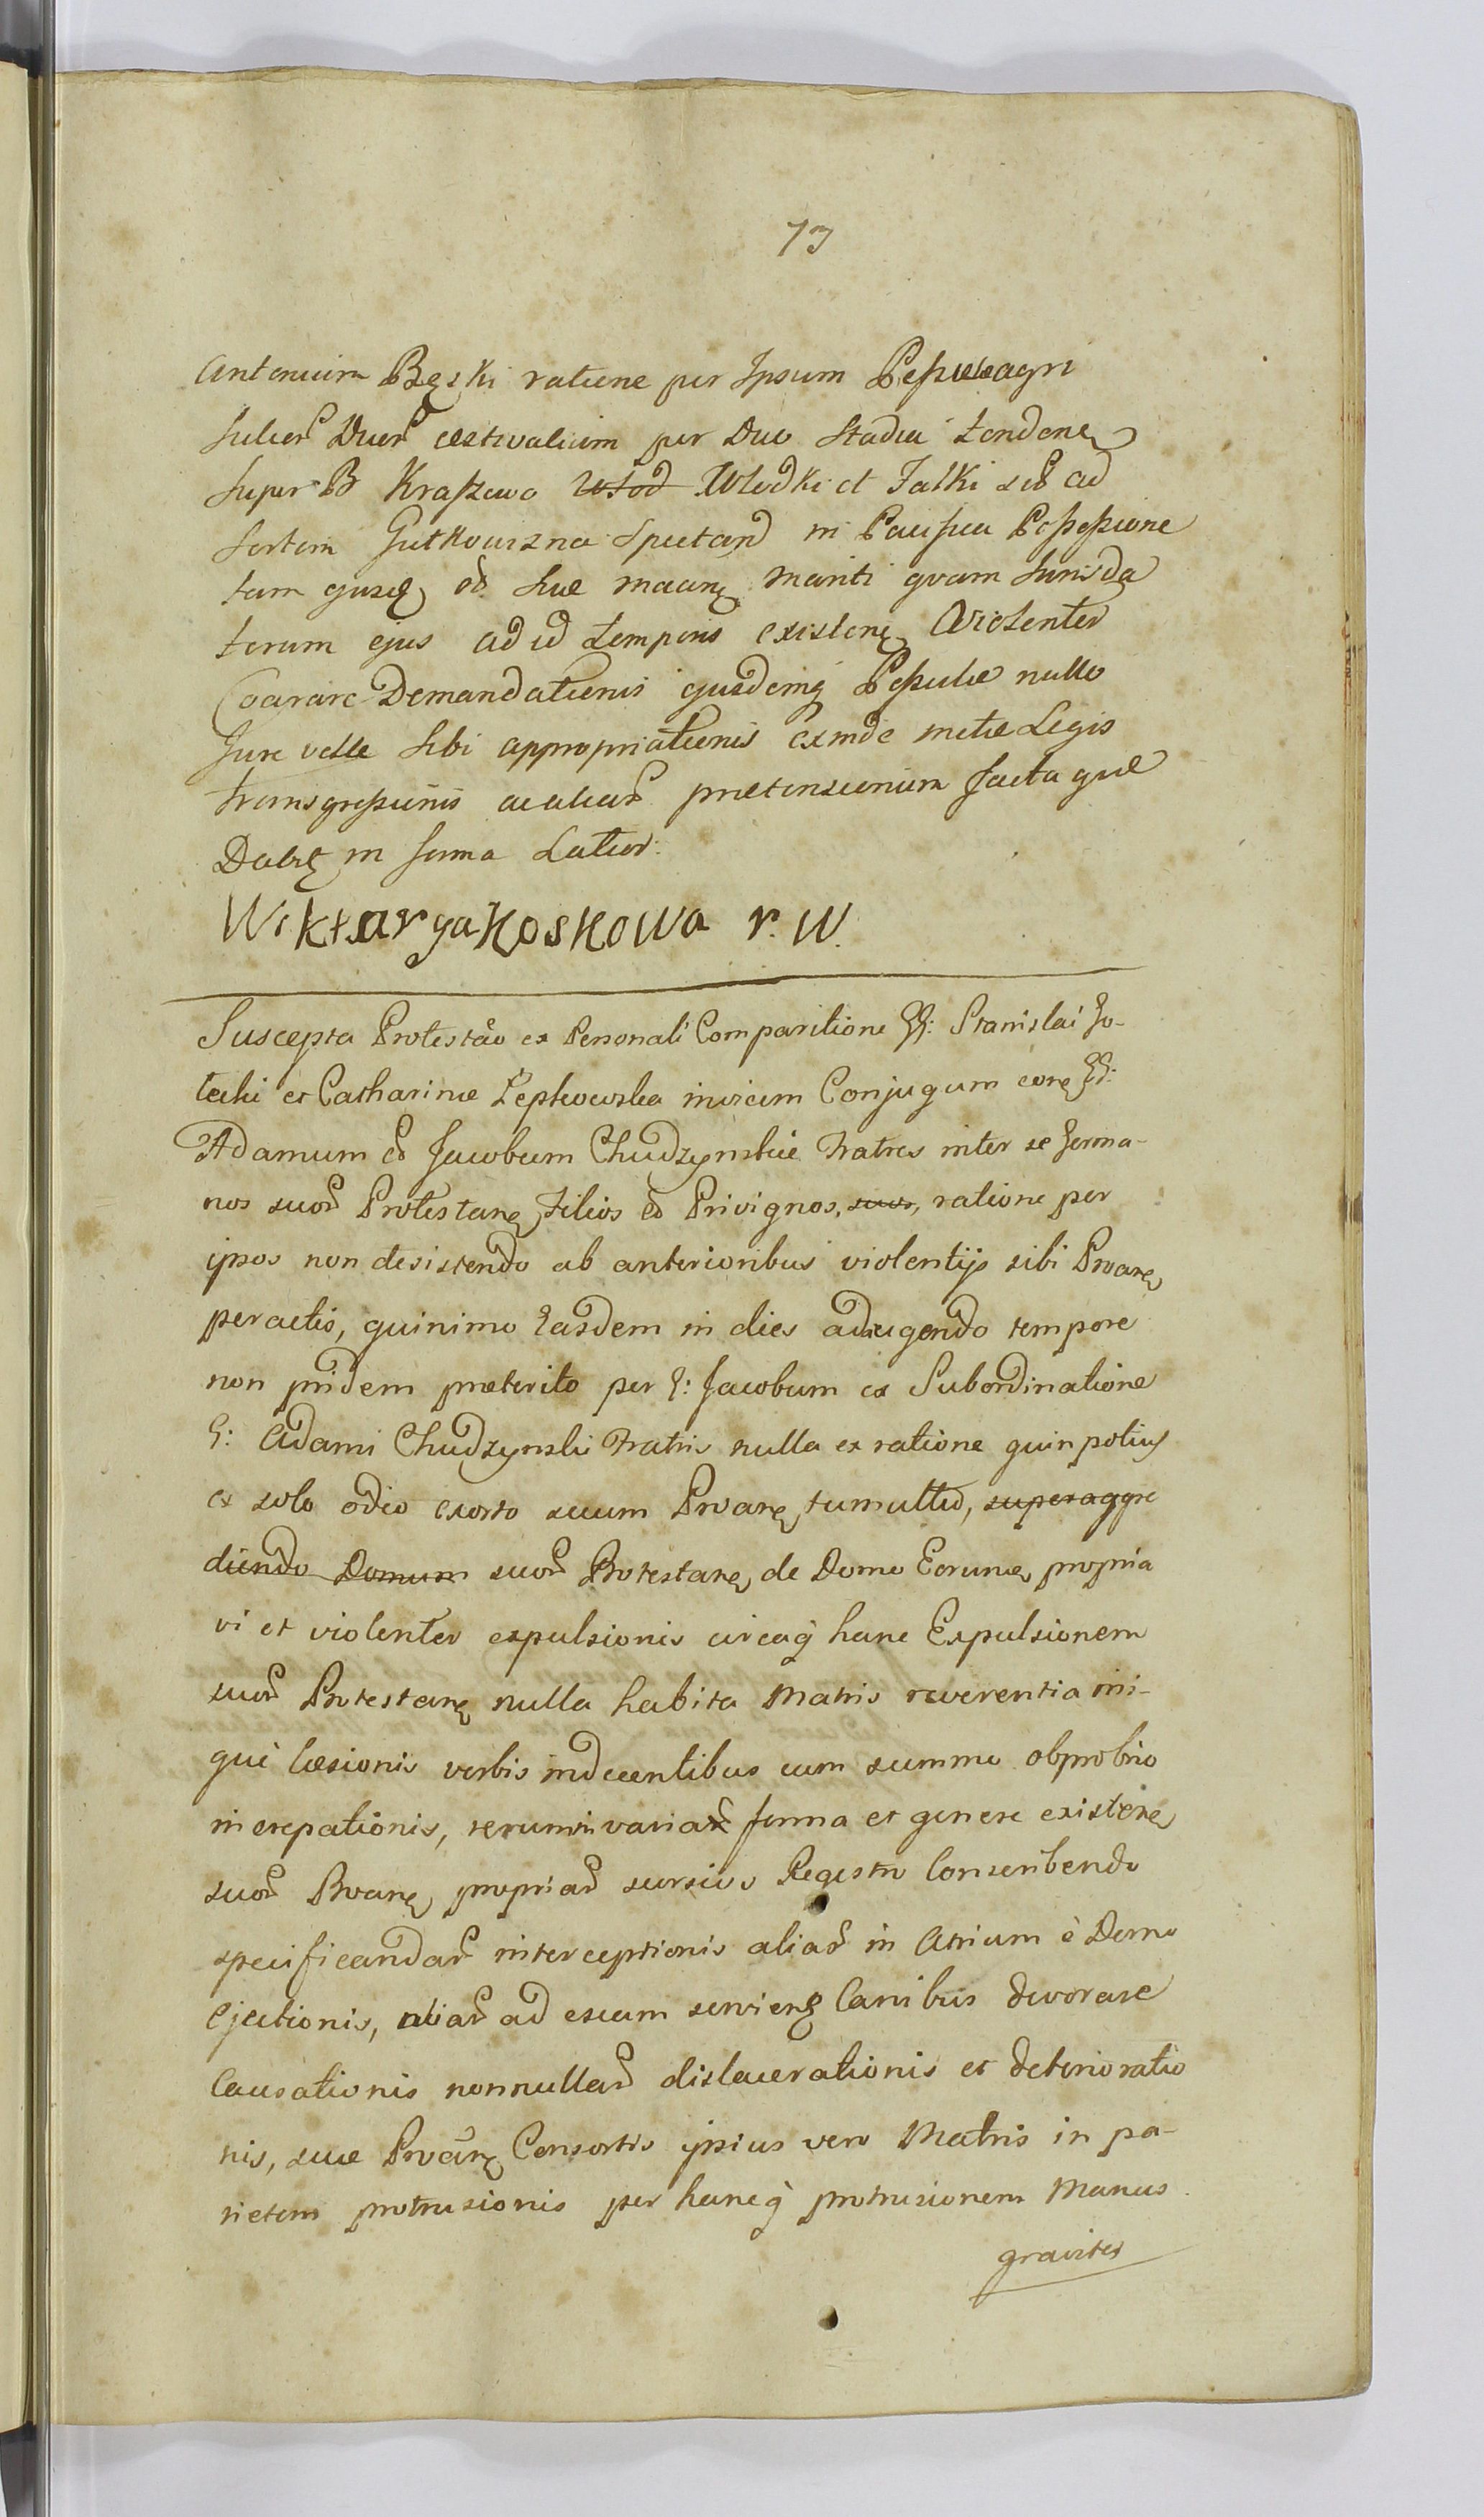 73
Antonium Bęski ratione per Ipsum agri
Sulcor Duor aestivalium per Duo Stadia tendene
Super B Kraszewo Wtod Wlodki et Falki seu ad
Sortem Gutkowizna Spectand in Pacifica Possessione
tam ejusd et Suae maane mariti quam
terum ejus ad id temporis existene Violenter
Coarare Demandationis ejusdemq Possulae nullo
Jure velle Sibi appropriationis exinde metae Legis
transgressionis aealiar praetensionum facta quae
Dabit in forma Latior.
Wiktarya Koskowa r. W.
Suscepta Protestão ex Personali Comparitione GG: Stanislai Jo-
techi et Catharinae Lepkowska invicem Conjugum corę GG:
Adamum et Jacobum Chudzynskie Fratres inter se Germa-
nos suor Protestane, Filios et Privignos, suos, ratione per
ipsos non desistendo ab anterioribus violentijs sibi Prvane
peractis, quinimo Easdem in dies adaugendo tempore
non pridem praeterito per G: Jacobum ex Subordinatione
G: Adami Chudzynski Fratris nulla ex ratione quin potius
ex solo odio exorto suum Prvane, tumultu, superaggre
diendo Domum suor Protestane, de Domo Eorume, propria
vi et violenter expulsionis circaq hanc Expulsionem
suor Protestane nulla habita Matris reverentia ini-
que laesionis verbis indecentibus cum summo obprobrio
increpationis, rerum in variar forma et genere existene
suor Prvane, propriar sursivo Regestro Conscribendo
specificandar interceptionis aliar in Atrium è Domo
Ejectionis, aliar ad escam serviene Canibus devorare
Causationis nonnullar dislacerationis et deterioratio
nis, suae Prvane Consortis ipsius vero Matris in pa-
rietem protrusionis per hancq protrusionem Manus
graviter